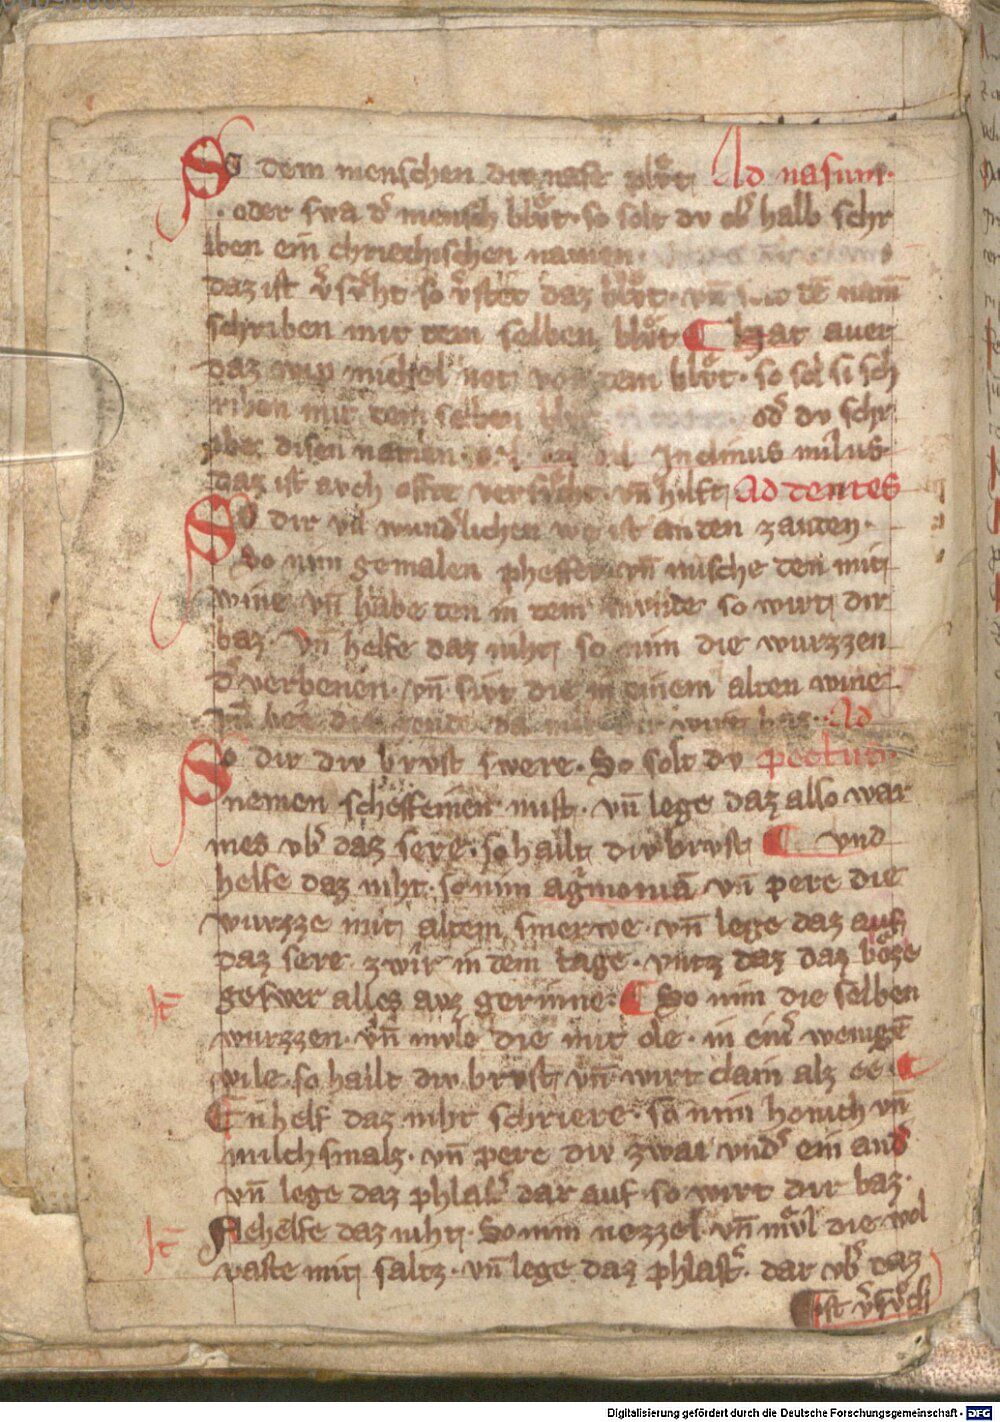 So dem menschen div nase plv̊t Ad nasum.
oder swa d' mensch blv̊t. so solt dv ob' halb schr
iben ein chriechischen namen
daz ist v'sv̊ht so v'stet daz blv̊t. vn̄ den nam̄
schriben mit dem selben blv̊t hat auer
daz wip michel not von dem blv̊t. so sol si sch
riben mit dem selben od' dv schr
disen namen. In clinus milus
daz ist avch offte versv̊cht. vn̄ hilft Ad dentes
So dir vil wund'lichen we ist an den zanden.
So nim gemalen pheffer vn̄ mische den mit
wine vn̄ habe den in dem munde so wirt dir
baz. vn̄ helfe daz niht so nim die wurzzen
d' verbenen. vn̄ sivt die in einem alten wine
dir wirt baz. Ad
So dir div brvst swere. So solt dv pectus.
nemen scheffeinen mist. vn̄ lege daz also war
mes vb' daz sere. so hailt div brvst vnd
helfe daz niht. so nim ag'moniā vn̄ pere die
wurzze mit altem smerwe. vn̄ lege daz auf
daz sere. zwir in dem tage. vntz daz daz bo̊ze
geswer alles avz gerinne. So nim die selben
wurzzen. vn̄ mvle die mit ole. in ein' wenigē
wile. so hailt div brvst vn̄ wirt clain alz ee.
En helf daz niht schriere. so nim honich vn̄
milch smalz. vn̄ pere div zwai vnd' ein and'
vn̄ lege daz phlast' dar auf. so wirt dir baz.
Nehelfe daz niht. So nim nezzel vn̄ mv̊l die wol
vaste mit saltz. vn̄ lege daz phlast'. dar vb' daz
ist v'sv̊ch